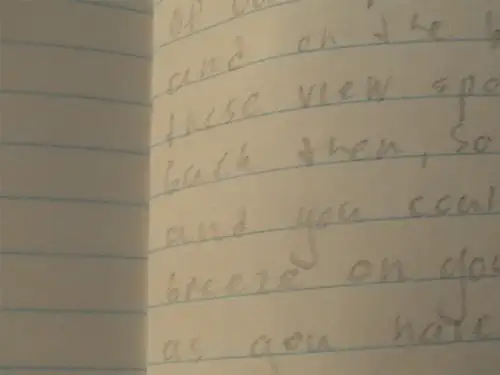 of
and on the b
these view spo
back then, so
and you coul
breeze on you
as you have